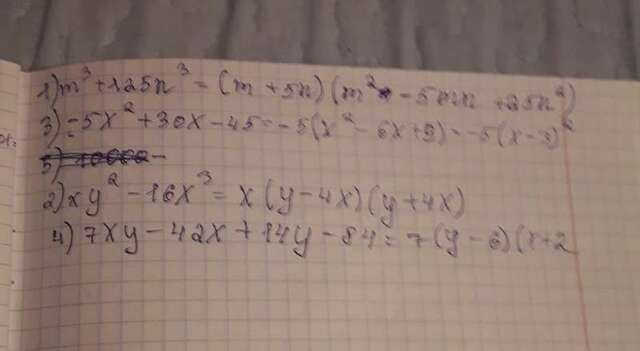 1) m³ + 125n³ = (m + 5n)(m² - 5mn + 25n²)
3) -5x² + 30x - 45 = -5(x² - 6x + 9) = -5(x - 3)²
5)
2) xy² - 16x³ = x(y - 4x)(y + 4x)
4) 7xy - 42x + 14y - 84 = 7(y - 6)(x + 2